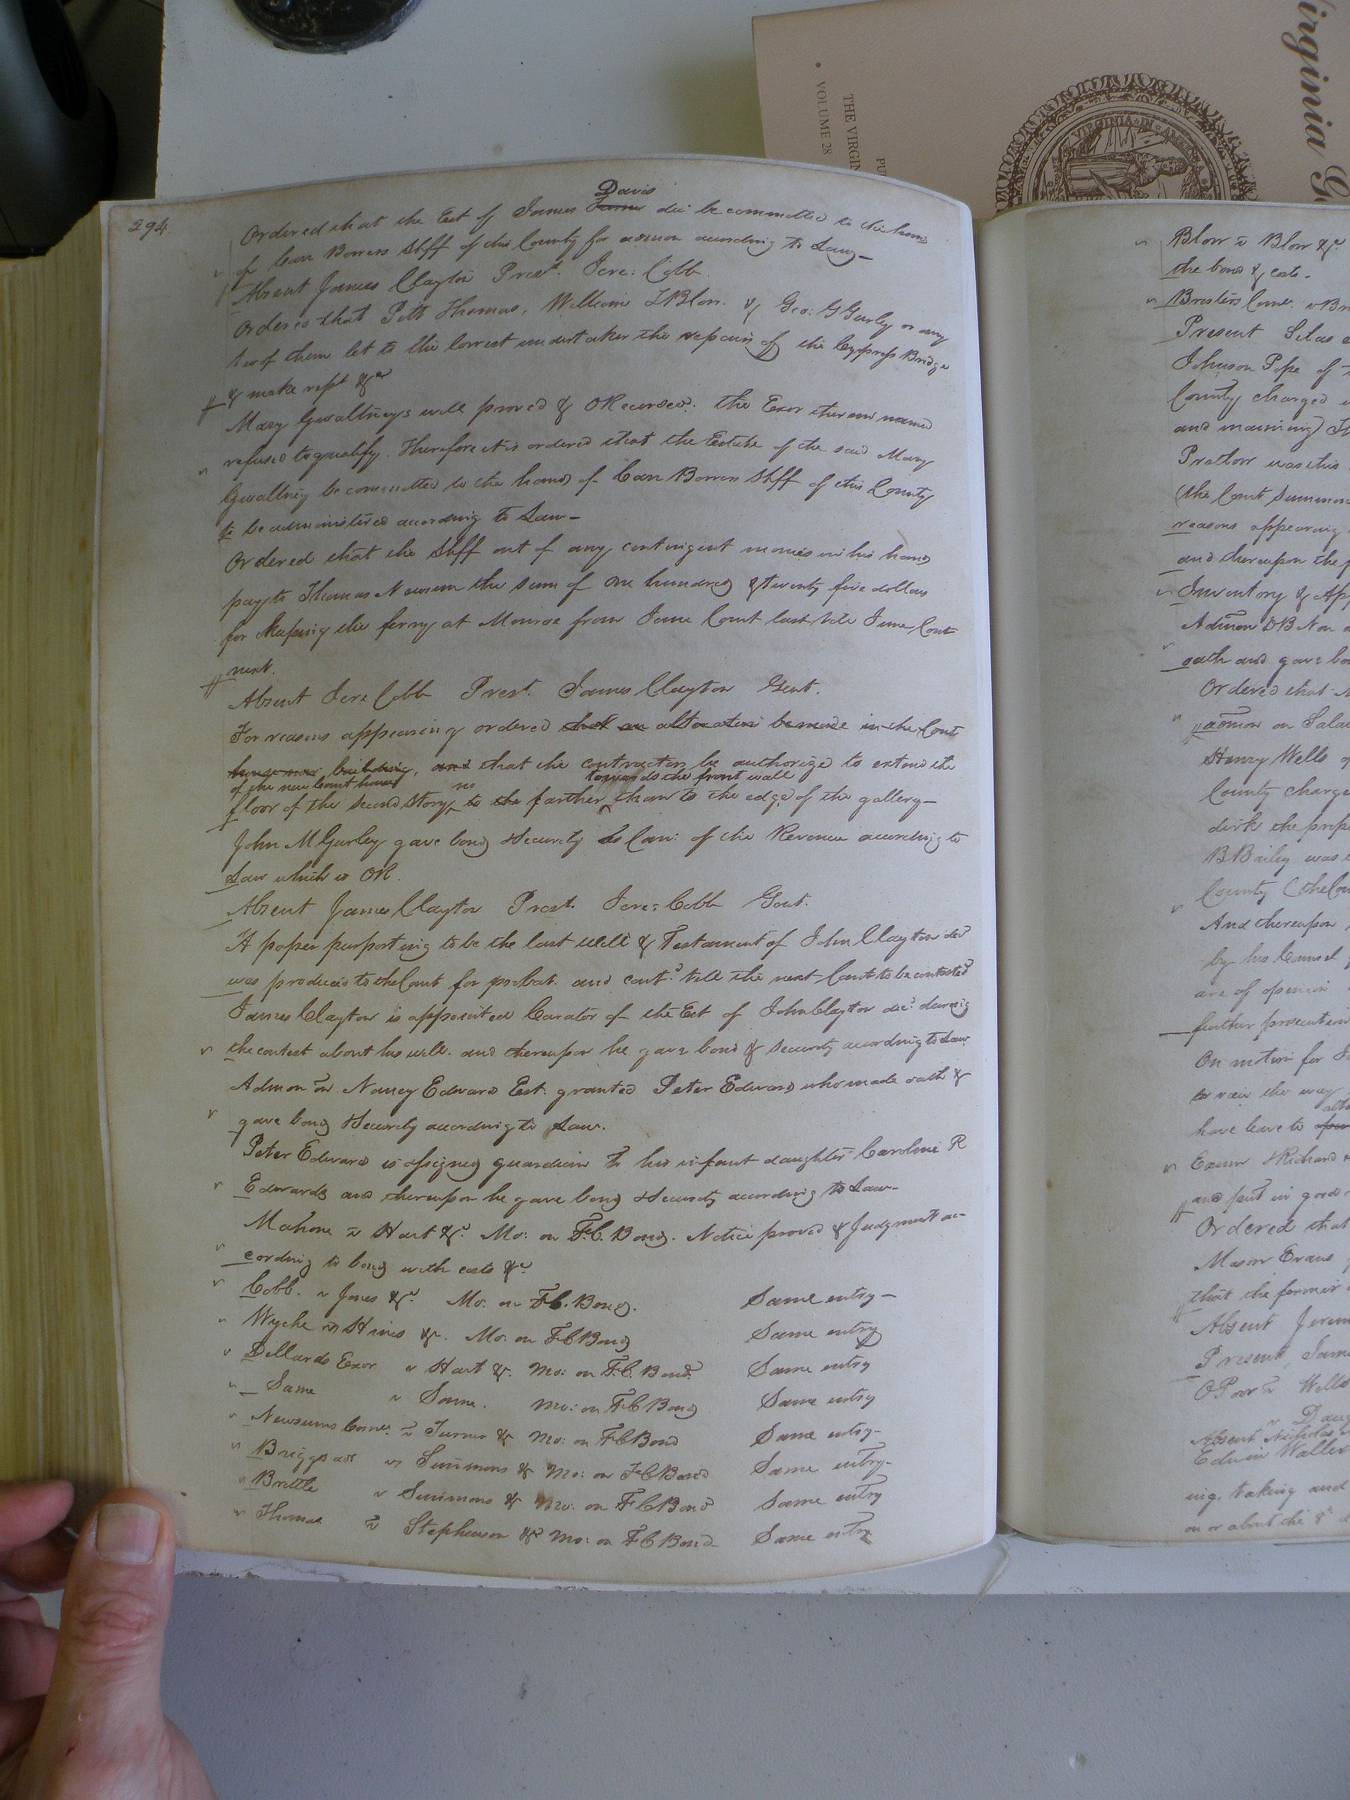 294
Ordered that the Est of James Turner Davis dec be committed to the hands
of Carr Bowers Shff of this County for admon according to Law—
Absent James Clayton Prest. Jere: Cobb.
Ordered that Peth Thomas, William L Blow. & Geo: G Gurley or any
two of them let to the lowest undertaker the repairs of the Cypress Bridge
& make rept &c
Mary Gwaltneys will proved & OR ecorded. the Exor therein named
refused to qualify. Therefore it is ordered that the Estate of the said Mary
Gwaltney be committed to the hands of Carr Bowers Shff of this County
to be administered according to Law—
Ordered that the Shff out of any contingent monies in his hands
pay to Thomas Newsum the sum of one hundred & twenty five dollars
for keeping the ferry at Monroe from June Court last till June Court
next.
Absent Jere Cobb Prest. James Clayton Gent.
For reasons appearing ordered that an alteration be made in the Court
house building, and that the contractor be authorize to extend the
of the new Court house no towards the front wall
floor of the second story to the farther than to the edge of the gallery—
John M Gurley gave bond & Security as Com: of the Revenue according to
Law which is OR.
Absent James Clayton Prest. Jere: Cobb Gent.
A paper purporting to be the last will & Testament of John Clayton decd
was produced to the Court for probat. and contd till the next Court to be contested
James Clayton is appointed Curator of the Est of John Clayton decd during
the contest about his will. and thereupon he gave bond & security according to Law
Admon on Nancy Edwards Est: granted Peter Edwards who made oath &
gave bond & Security according to Law.
Peter Edwards is assigned guardian to his infant daughter Caroline R
Edwards and thereupon he gave bond & Security according to Law—
Mahone vs Hart &c. Mo: on F.C. Bond. Notice proved & Judgment ac-
cording to bond with costs &c
Cobb. vs Jones &c. Mo. on F.C. Bond. Same entry—
Wyche vs Hines &c. Mo: on F C Bond Same entry
Dillards Exor vs Hart &c. Mo: on F.C. Bond. Same entry
Same vs Same. Mo: on F C Bond Same entry
Newsums vs Turner &c Mo: on F C Bond Same entry—
Briggs vs Simmons &c Mo: on F C Bond Same entry—
Brittle vs Simmons &c Mo: on F C Bond Same entry
Thomas vs Stephenson &c Mo: on F C Bond Same entry
Blow vs Blow &c
the bond & costs.
Present Silas
Johnson Pope of
County charged
and maiming
was this
(the Court
reasons appearing
and thereupon the
Inventory & App
Admon DB Non
oath and gave
Ordered that
admon on
Henry Wells
County charge
dirk the
B Bailey was
County (the
And thereupon
by his Counsel
are of opinion
further prosecution
On motion for
to view the way
have leave to
Exum & Richard
and put in good
Ordered that
Mason Evans
that the former
Absent
Present
vs Wells
Absent Nicholas
Edwin
ing, taking and
on or about the
THE VIRGIN
VOLUME 28
Virginia G
VIRGINIA